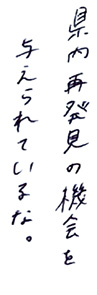 県内再発見の機会を
与えられているな。